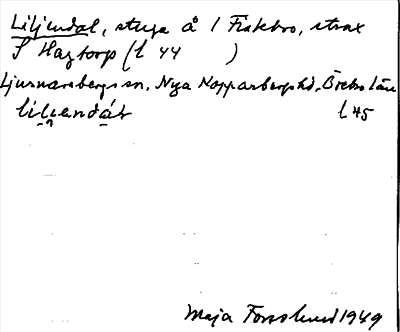 Liljendal, stuga å 1 Fiskebo, strax
S Hagtorp (l 44 )
Ljusnarsbergs sn, Nya Kopparbergs hd, Örebro län
l 45
Maja Forsslund 1949